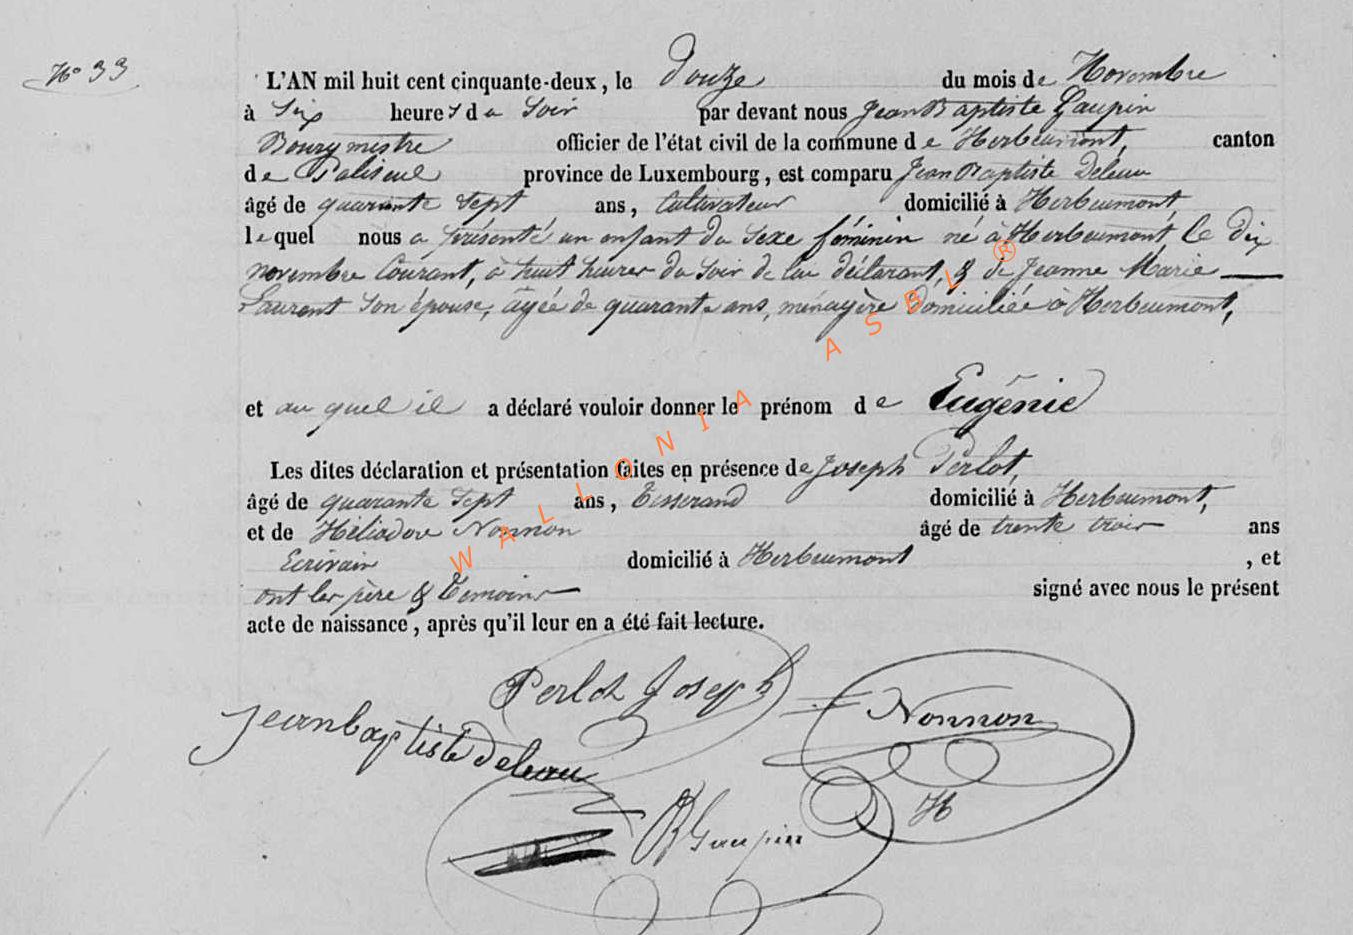 N° 33
L'AN mil huit cent cinquante-deux, le douze du mois de Novembre
à Six heures du Soir par devant nous Jean Baptiste Gaupin
Bourgmestre officier de l'état civil de la commune de Herbeumont, canton
de Paliseul province de Luxembourg, est comparu Jean Baptiste Deleau
âgé de quarante Sept ans, Cultivateur domicilié à Herbeumont
lequel nous a présenté un enfant du Sexe féminin né à Herbeumont, le dix
novembre Courant, à huit heures du Soir de lui déclarant, & de Jeanne Marie
Laurent Son épouse, âgée de quarante ans, ménagère domiciliée à Herbeumont,
et au quel il a déclaré vouloir donner le prénom de Eugénie
Les dites déclaration et présentation faites en présence de Joseph Perlot,
âgé de quarante Sept ans, Tisserand domicilié à Herbeumont,
et de Héliodore Nonnon âgé de trente trois ans
Ecrivain domicilié à Herbeumont, et
ont les père & Témoins signé avec nous le présent
acte de naissance, après qu'il leur en a été fait lecture.
Perlot Joseph
Nonnon
Jean baptiste deleau
H
JB Gaupin
WALLONIA ASBL ®